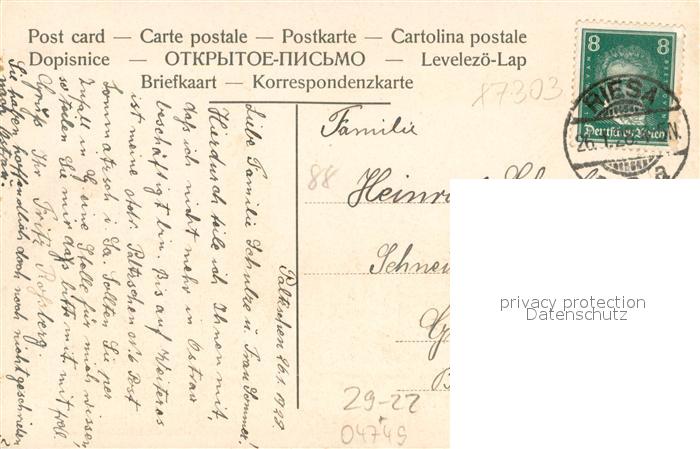 Post card — Carte postale — Postkarte — Cartolina postale
Dopisnice — ОТКРЫТОЕ-ПИСЬМО — Levelező-Lap
Briefkaart — Korrespondenzkarte
8 8
Deutsches Reich
RIESA
a
87303
88
Familie
Heinri
Schnei
privacy protection
Datenschutz
29-22
04749
26.1.1929
Liebe Familie Schulze u. Frau Sommer!
Hierdurch teile ich Ihnen mit,
daß ich nicht mehr in Ostrau
beschäftigt bin. Bis auf Weiteres
ist meine Adr. Post
Lommatzsch i. Sa. Sollten Sie per
Zufall in L. eine Stelle für mich wissen,
so teilen Sie mir das bitte mit
Gruß Ihr Fritz Roßberg.
Sie haben hoffentlich doch noch nicht geschrieben
nach Ostrau.